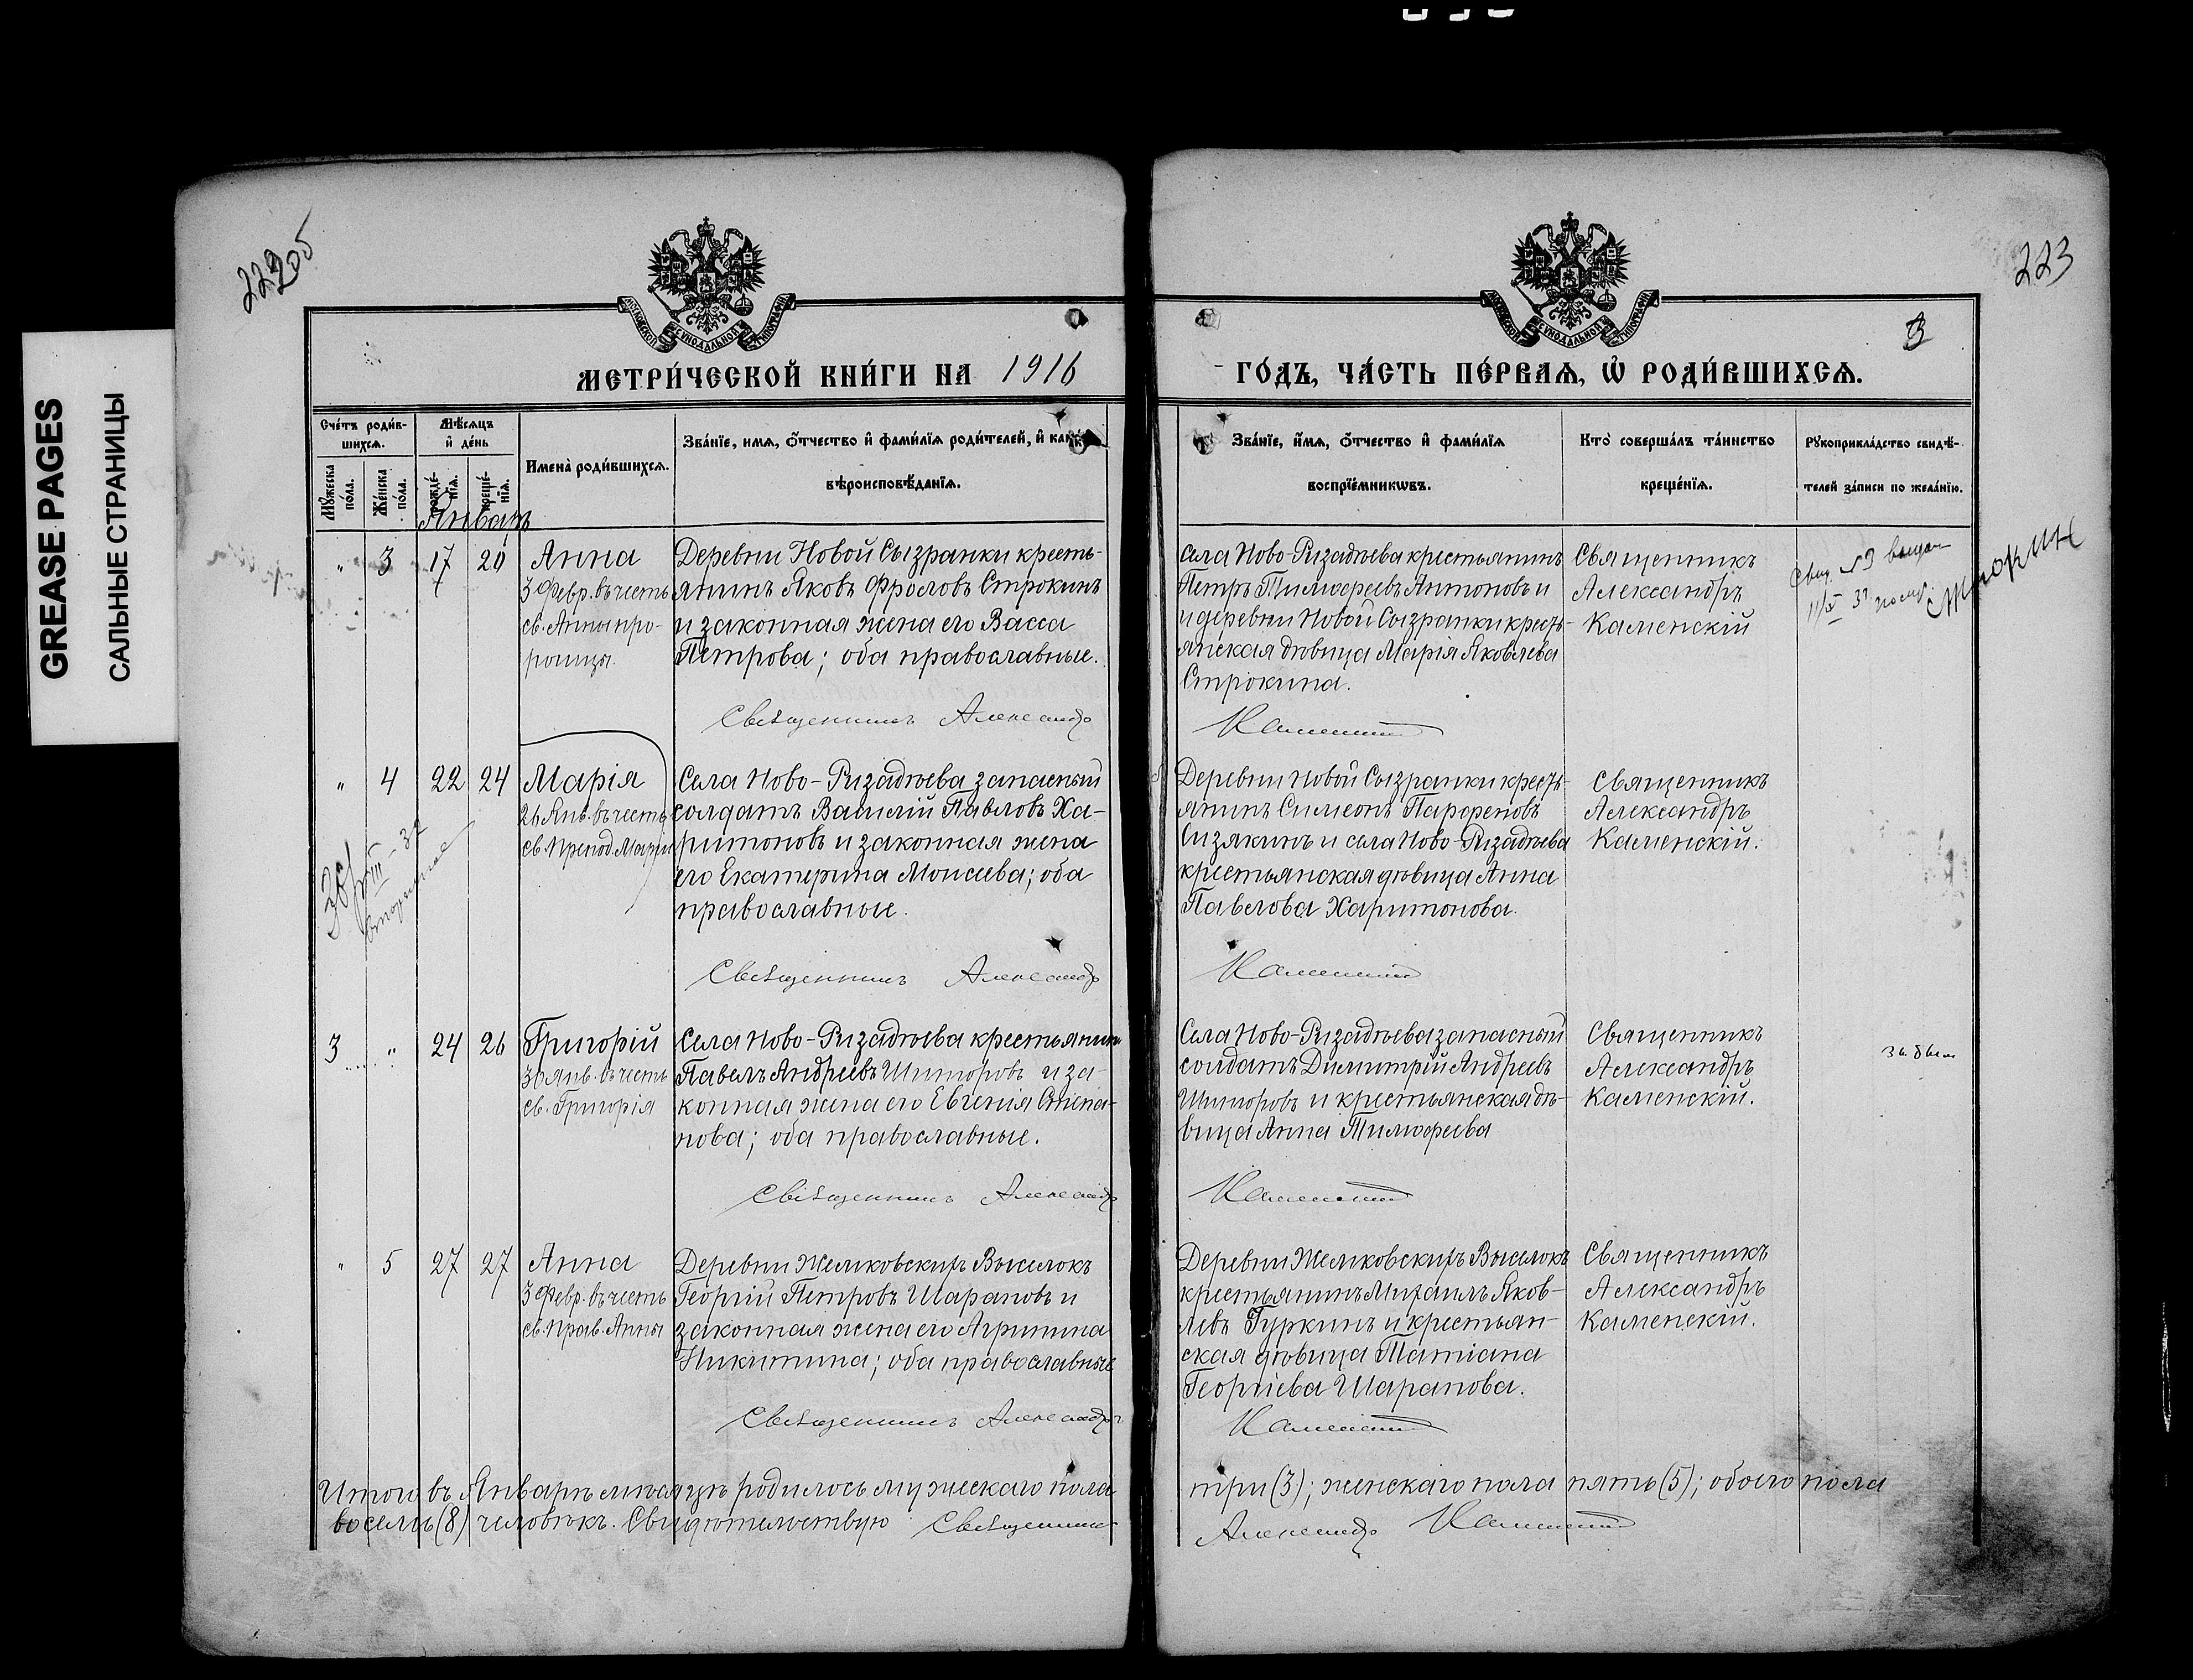 GREASE PAGES
САЛЬНЫЕ СТРАНИЦЫ
222об
223
3
МОСКОВСКОЙ СѴНОДАЛЬНОЙ ТИПОГРАФІИ
МОСКОВСКОЙ СѴНОДАЛЬНОЙ ТИПОГРАФІИ
МЕТРИ́ЧЕСКОЙ КНИ́ГИ НА 1916
ГО́ДЪ, ЧА́СТЬ ПЕ́РВАѦ, Ѡ҆ РОДИ́ВШИХСѦ.
Сче́тъ роди́в-
шихсѧ.
Мꙋжеска по́ла.
Же́нска по́ла.
Мѣ́сѧцъ
и҆ де́нь
рожде́-
нїѧ.
креще́-
нїѧ.
Имена̀ роди́вшихсѧ.
Зва́нїе, имѧ, ѻ҆́тчество и҆ фами́лїѧ роди́телей, и҆ како́гѡ
вѣроисповѣ́данїѧ.
Зва́нїе, и҆́мѧ, ѻ҆́тчество и҆ фами́лїѧ
воспрїе́мникѡвъ.
Кто̀ соверша́лъ та́инство
креще́нїѧ.
Рꙋкоприкла́дство свидѣ́-
телей за́писи по жела́нїю.
Январь
" 3 17 20
Анна
3 Февр. въ честь
св. Анны про-
роицы.
Деревни Новой Сызранки кресть-
янинъ Яковъ Фроловъ Строкинъ
и законная жена его Васса
Петрова; оба православные.
села Ново-Ризадѣева крестьянинъ
Петръ Тимофеевъ Антоновъ и
и деревни Новой Сызранки кресть-
янская дѣвица Марія Яковлева
Строкина.
Священникъ
Александръ
Каменскій
Священникъ Александръ
Каменскій
" 4 22 24
Марія
26 Янв. въ честь
св. Препод. Маріи
Села Ново-Ризадѣева запасный
солдатъ Василій Павловъ Ха-
ритоновъ и законная жена
его Екатерина Моисеева; оба
православные.
Деревни Новой Сызранки кресть-
янинъ Симеонъ Парфеновъ
Сизякинъ и села Ново-Ризадѣева
крестьянская дѣвица Анна
Павелова Харитонова.
Священникъ
Александръ
Каменскій.
Священникъ Александръ
Каменскій
3 " 24 26
Григорій
30 Янв. въ честь
св. Григорія
Села Ново-Ризадѣева крестьянинъ
Павелъ Андреевъ Шиторовъ и за-
конная жена его Евгенія Степа-
нова; оба православные.
Села Ново-Ризадѣева запасный
солдатъ Димитрій Андреевъ
Шиторовъ и крестьянская дѣ-
вица Анна Тимофеева
Священникъ
Александръ
Каменскій.
Священникъ Александръ
Каменскій
" 5 27 27
Анна
3 Февр. въ честь
св. Прав. Анны
Деревни Желиковскихъ Выселокъ
Георгій Петровъ Шараповъ и
законная жена его Агриппина
Никитина; оба православные
Деревни Желиковскихъ Выселокъ
крестьянинъ Михаилъ Яков-
левъ Гуркинъ и крестьян-
ская дѣвица Татіана
Георгіева Шарапова.
Священникъ
Александръ
Каменскій.
Священникъ Александръ
Каменскій
Итого въ Январѣ мѣсяцѣ родилось мужескаго пола
три (3); женскаго пола пять (5); обоего пола
восемь (8) человѣкъ. Свидѣтельствую Священникъ
Александръ Каменскій